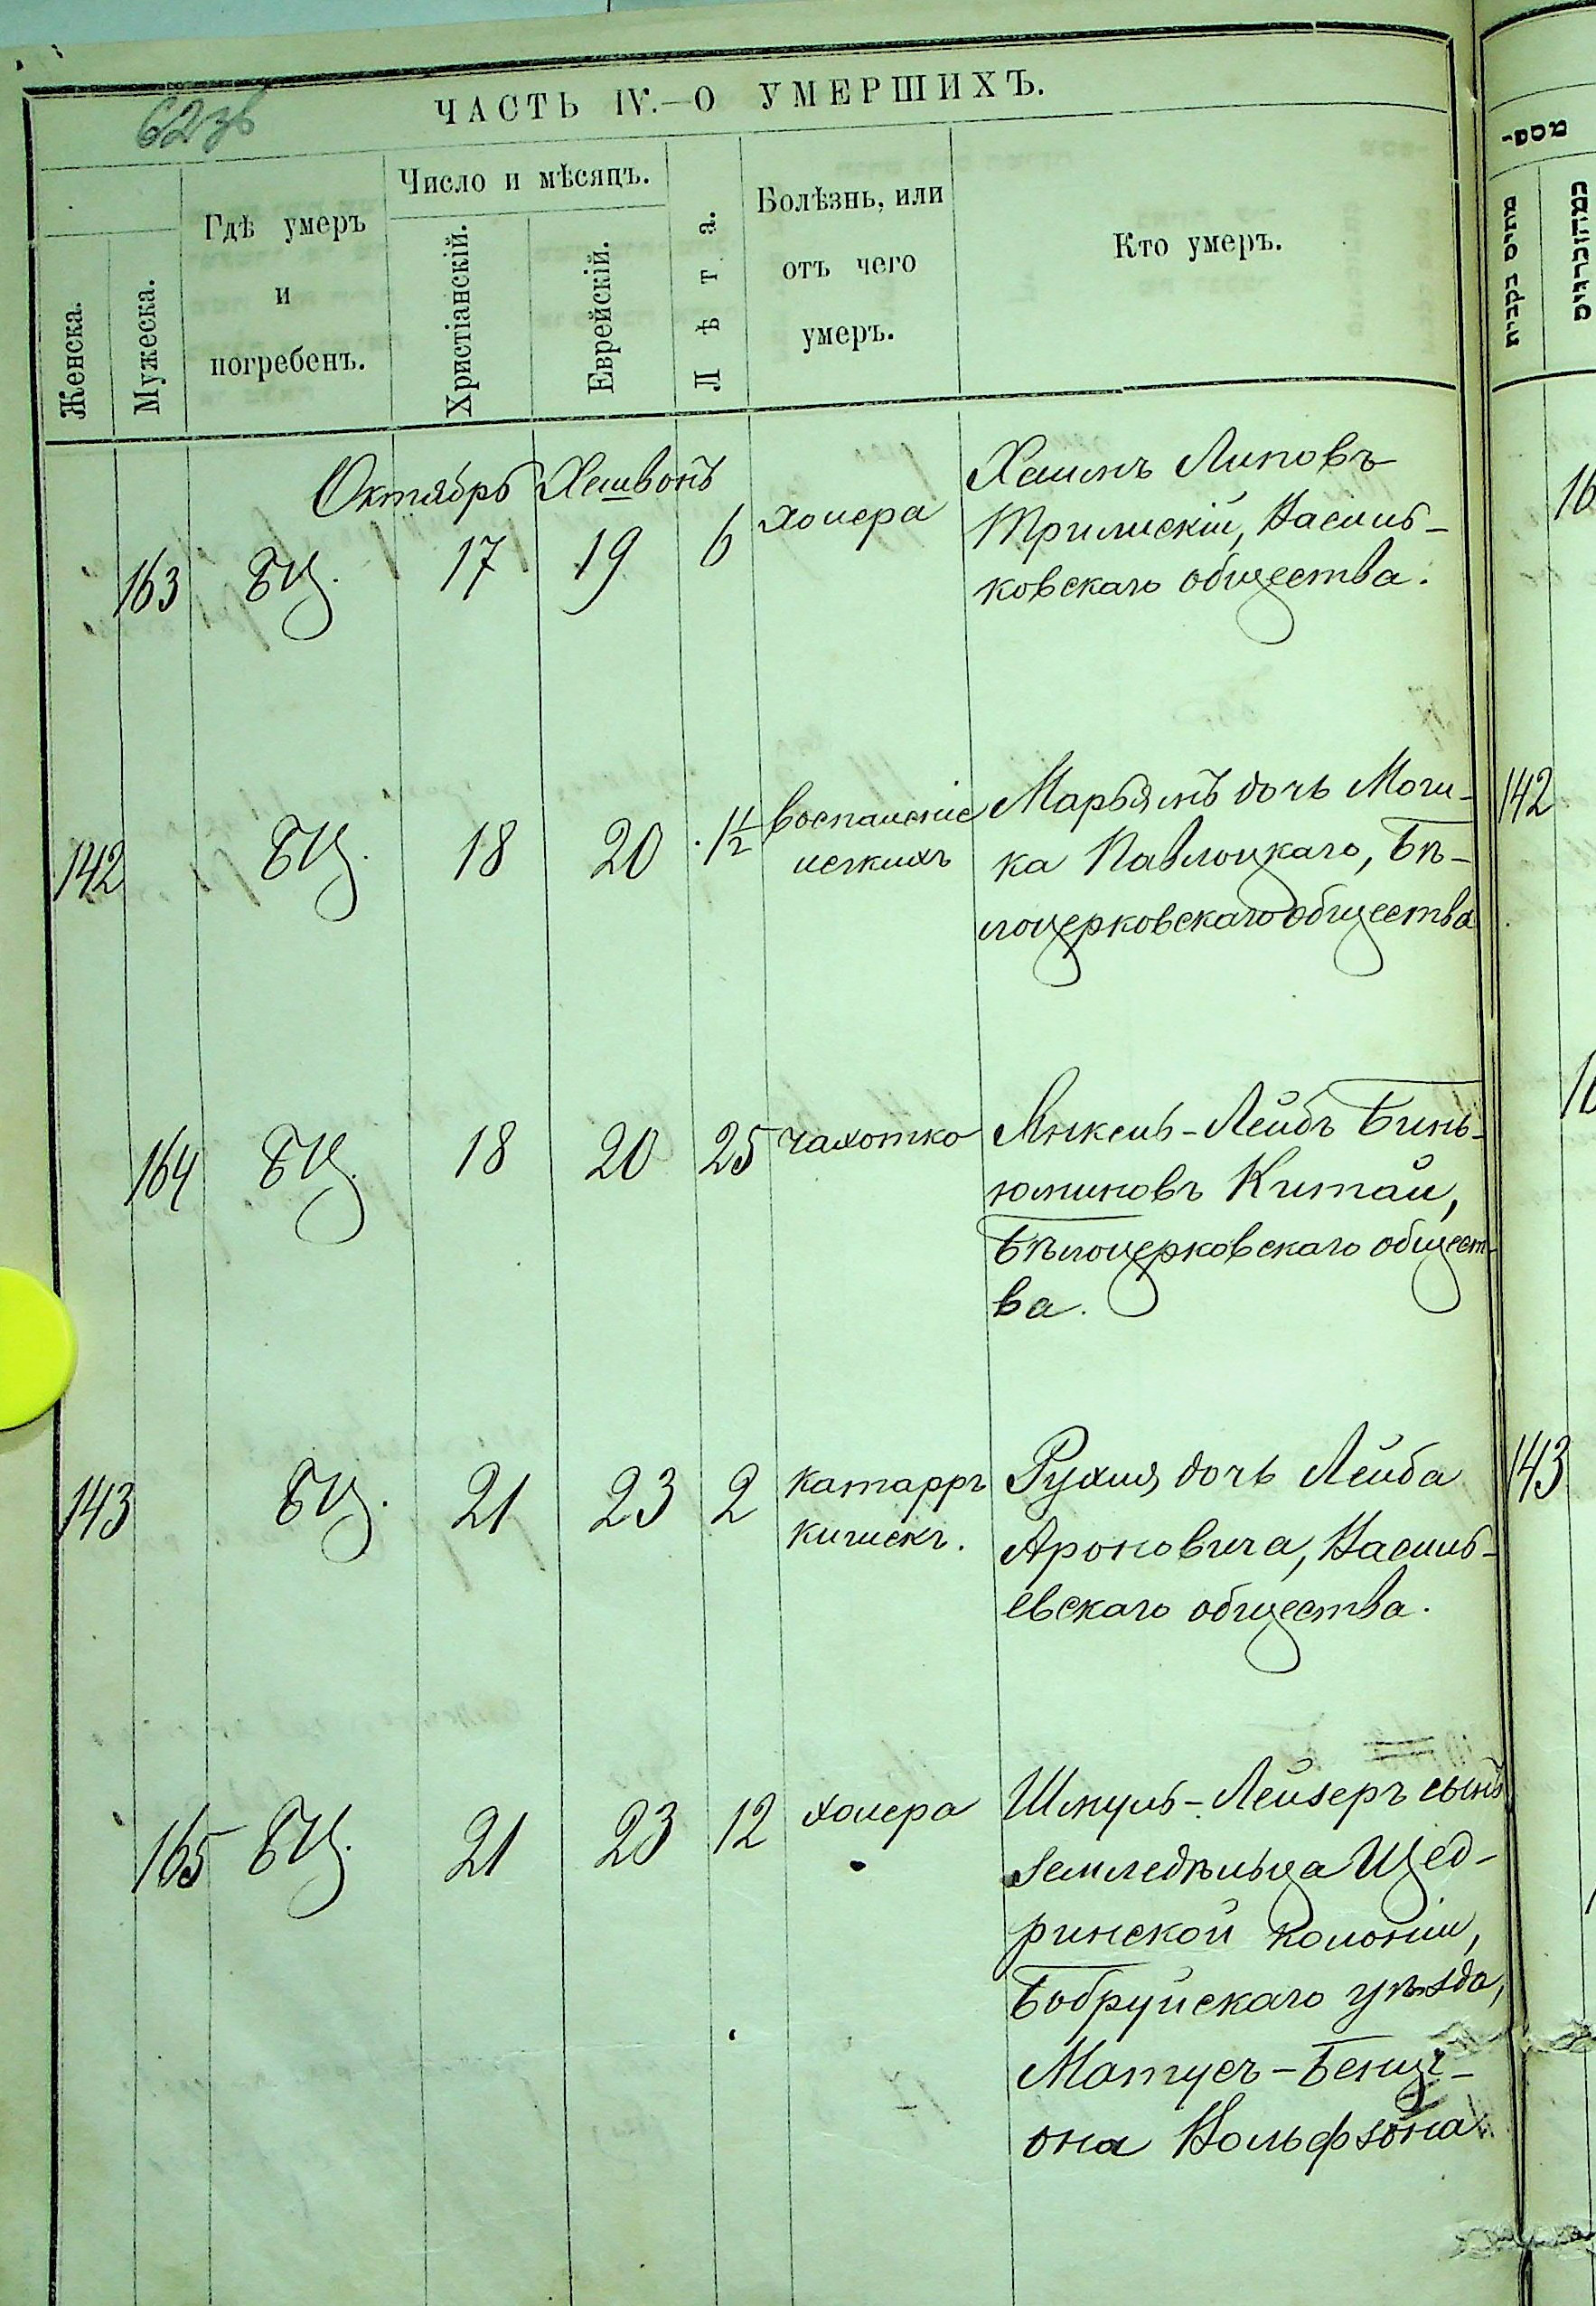 62 зв
ЧАСТЬ IV.—О УМЕРШИХЪ.
Женска.
Мужеска.
Гдѣ умеръ
и
погребенъ.
Число и мѣсяцъ.
Христіанскій.
Еврейскій.
Лѣта.
Болѣзнь, или
отъ чего
умеръ.
Кто умеръ.
Октябрь Хешвонъ
163 БЦ. 17 19 6 холера Хаимъ Липовъ
Трилискій, Василь-
ковскаго общества.
142 БЦ. 18 20 1½ воспаленіе легкихъ Марьямъ дочь Моги-
ка Павлоцкаго, Бѣ-
лоцерковскаго общества
164 БЦ. 18 20 25 чахотко Янкель-Лейбъ Бинь-
юминовъ Китай,
Бѣлоцерковскаго общест-
ва.
143 БЦ. 21 23 2 катарръ кишекъ. Рухля, дочь Лейба
Ароновича, Василь-
евскаго общества.
165 БЦ. 21 23 12 холера Шмуль-Лейзеръ сынъ
земледѣльца Щед-
ринской колоніи,
Бобруйскаго уѣзда,
Матусъ-Бенці-
она Вольфзона.
מספר
142
143